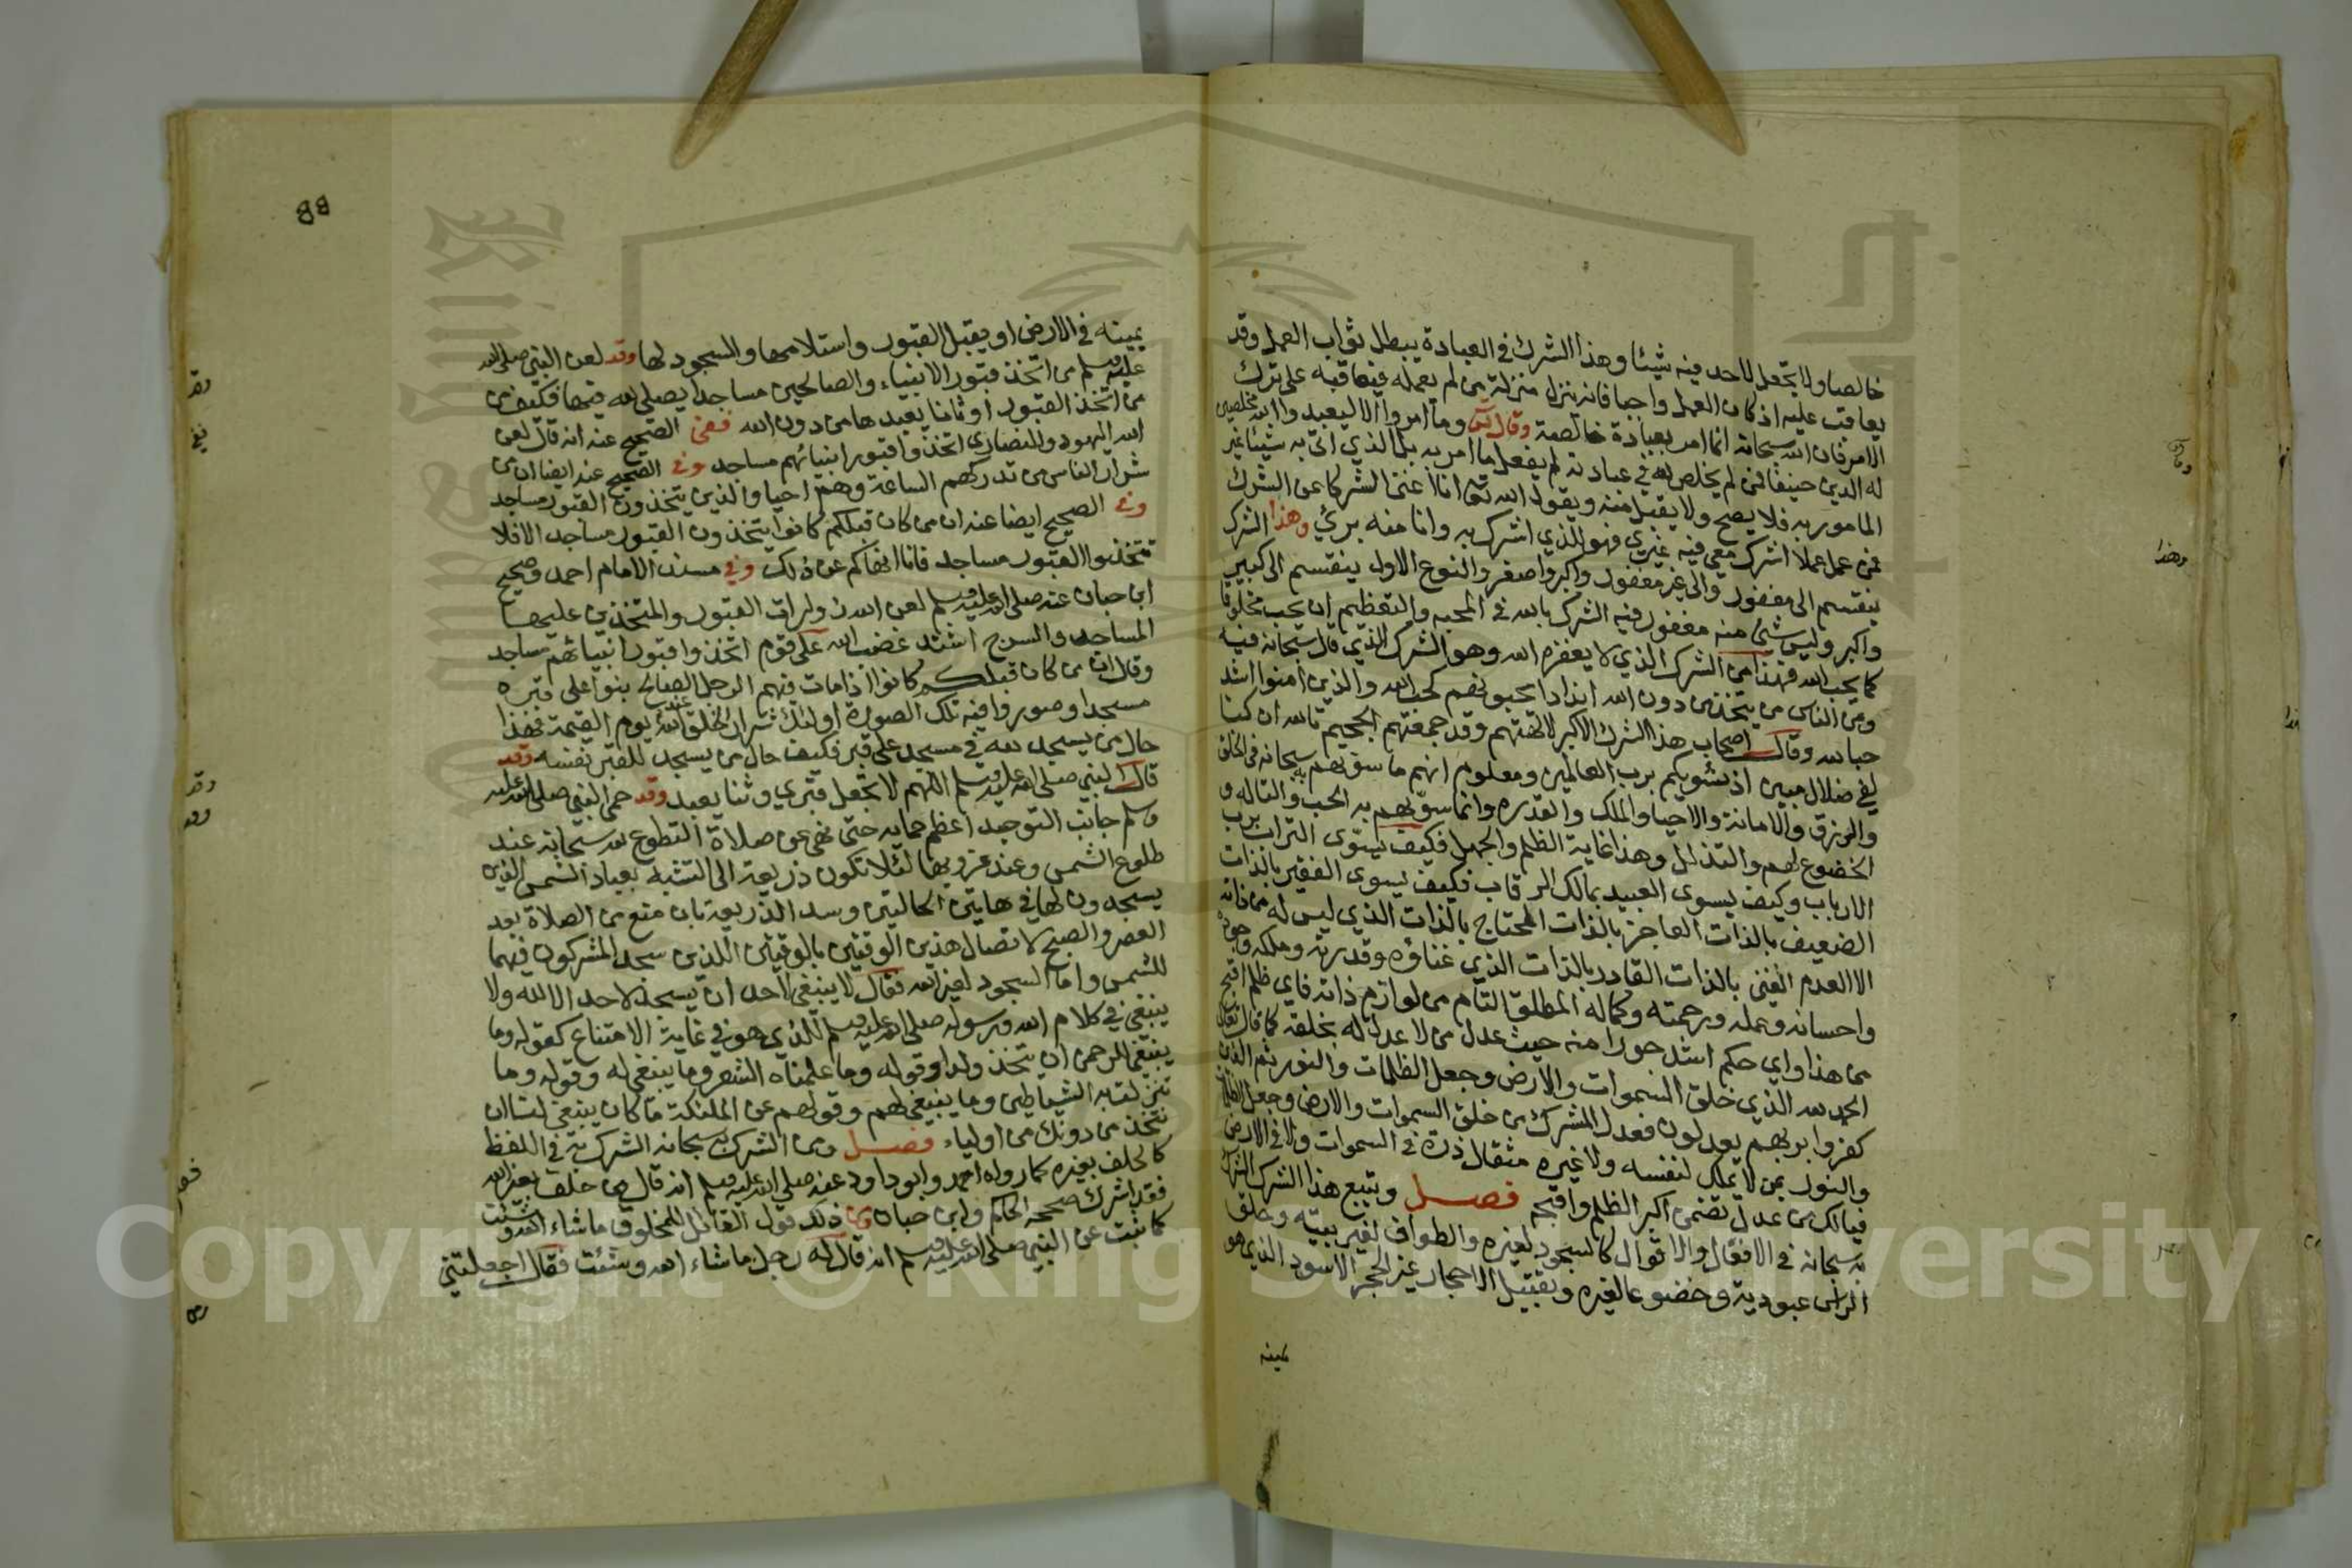 خالصا ولا تجعل لاحد فيه شيئا وهذا الشرك في العبادة يبطل ثواب العمل وقد
يعاقب عليه اذ كان العمل واجبا فانه ينزل منزلة من لم يعمله فيعاقبه على ترك
الامر فان الله سبحانه انما امر بعبادة خالصة وقال تعالى وما امروا الا ليعبدوا الله مخلصين
له الدين حنيفا فمن لم يخلص لله في عبادته لم يفعل ما امر به بل الذي اتى به شيئا غير
المامور به فلا يصح ولا يقبل منه ويقول الله تعالى انا اغنى الشركا عن الشرك
فمن عمل عملا اشرك معي فيه غيري فهو للذي اشرك به وانا منه بريئ وهذا الشرك
ينقسم الى مغفور والى غير مغفور واكبر واصغر والنوع الاول ينقسم الى كبير
واكبر وليس شيئ منه مغفور فيه الشرك بالله في المحبه والتعظيم ان يحب مخلوقا
كما يحب الله فهذا من الشرك الذي لا يغفره الله وهو الشرك الذي قال سبحانه فيه
ومن الناس من يتخذ من دون الله اندادا يحبونهم كحب الله والذين امنوا اشد
حبا لله وقال اصحاب هذا الشرك الاكبر لآلهتهم وقد جمعتهم الجحيم تالله ان كنا
لفي ضلال مبين اذ نسويكم برب العالمين ومعلوم انهم ما سووهم به سبحانه في الخلق
والرزق والاماتة والاحيا والملك والقدرة وانما سووهم به الحب والتاله و
الخضوع لهم والتذلل وهذا غاية الظلم والجهل فكيف يسوى التراب برب
الارباب وكيف يسوى العبيد بمالك الرقاب فكيف يسوى الفقير بالذات
الضعيف بالذات العاجز بالذات المحتاج بالذات الذي ليس له من ذاته
الا العدم الغني بالذات القادر بالذات الذي غناؤه وقدرته وملكه وجوده
واحسانه وعلمه ورحمته وكماله المطلق التام من لوازم ذاته فاي ظلم اقبح
من هذا واي حكم اشد جورا منه حيث عدل من لا عدل له بخلقه كما قال تعالى
الحمد لله الذي خلق السموات والارض وجعل الظلمات والنور ثم الذين
كفروا بربهم يعدلون فعدل المشرك من خلق السموات والارض وجعل الظلمات
والنور بمن لا يملك لنفسه ولا غيره مثقال ذرة في السموات ولا في الارض
فيالك من عدل تضمن اكبر الظلم واقبحه فصل ويتبع هذا الشرك الشرك
به سبحانه في الافعال والاقوال كالسجود لغيره والطواف لغير بيته وحلق
الراس عبودية وخضوعا لغيره وتقبيل الاحجار غير الحجر الاسود الذي هو
يمينه
88
يمينه في الارض او يقبل القبور واستلامها والسجود لها وقد لعن النبي صلى الله
عليه وسلم من اتخذ قبور الانبياء والصالحين مساجدا يصلي لله فيها فكيف من
من اتخذ القبور اوثانا يعبدها من دون الله ففي الصحيح عنه انه قال لعن
الله اليهود والنصارى اتخذوا قبور انبيائهم مساجد وفي الصحيح عنه ايضا ان من
شرار الناس من تدركهم الساعة وهم احيا والذين يتخذون القبور مساجد
وفي الصحيح ايضا عنه ان من كان قبلكم كانوا يتخذون القبور مساجد الا فلا
تتخذوا القبور مساجد فانا انهاكم عن ذلك وفي مسند الامام احمد وصحيح
ابن حبان عنه صلى الله عليه وسلم لعن الله زوارات القبور والمتخذين عليها
المساجد والسرج اشتد غضب الله على قوم اتخذوا قبور انبيائهم مساجد
وقال ان من كان قبلكم كانوا اذا مات فيهم الرجل الصالح بنوا على قبره
مسجدا وصوروا فيه تلك الصورة اولئك شرار الخلق عند الله يوم القيمة فهذا
حال من يسجد لله في مسجد على قبر فكيف حال من يسجد للقبر نفسه وقد
قال النبي صلى الله عليه وسلم اللهم لا تجعل قبري وثنا يعبد وقد حمى النبي صلى الله عليه
وسلم جانب التوحيد اعظم حمايه حتى نهى عن صلاة التطوع لله سبحانه عند
طلوع الشمس وعند غروبها لئلا تكون ذريعة الى التشبه بعباد الشمس الذين
يسجدون لها في هاتين الحالتين وسد الذريعة بان منع من الصلاة بعد
العصر والصبح لاتصال هذين الوقتين بالوقتين اللذين سجد المشركون فيهما
للشمس واما السجود لغير الله فقال لا ينبغي لاحد ان يسجد لاحد الا لله ولا
ينبغي في كلام الله ورسوله صلى الله عليه وسلم للذي هو في غاية الامتناع كقوله وما
ينبغي للرحمن ان يتخذ ولدا وقوله وما علمناه الشعر وما ينبغي له وقوله وما
تنزلت به الشياطين وما ينبغي لهم وقولهم عن الملئكة ما كان ينبغي لنا ان
نتخذ من دونك من اولياء فصل ومن الشرك به سبحانه الشرك به في اللفظ
كالحلف بغيره كما رواه احمد وابو داود عنه صلى الله عليه وسلم انه قال من حلف بغير الله
فقد اشرك صححه الحاكم وابن حبان ومن ذلك قول القائل للمخلوق ما شاء الله وشئت
كما ثبت عن النبي صلى الله عليه وسلم انه قال له رجل ما شاء الله وشئت فقال اجعلتني
وهذا
وقد
Copyright © King Saud University